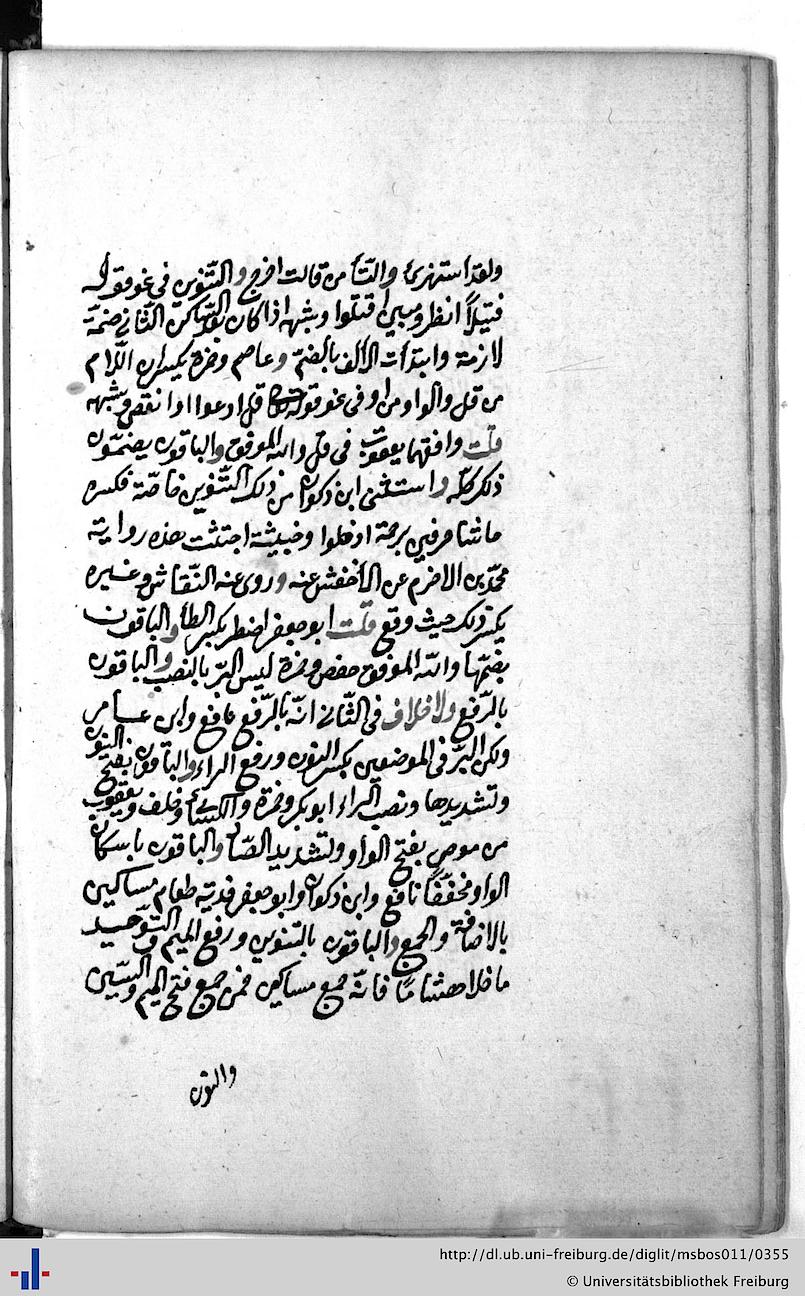 ولقد استهزئ والتاء من قالت اخرج والتنوين في نحو قوله
فتيلاً انظر ومبين اقتلوا وشبهه اذا كان بعد الساكن الثاني ضمة
لازمة وابتدأت الالف بالضم وعاصم وحمزة يكسران اللام
من قل والواو من او في نحو قوله قل ادعوا او انقص وشبهه
قلت وافقهما يعقوب في قل والله الموفق والباقون يضمون
ذلك كله واستثنى ابن ذكوان من ذلك التنوين خاصة فكسره
ما شا حرفين برحمة ادخلوا وخبيثة اجتثت هذه رواية
محمد بن الاخرم عن الاخفش عنه وروى عنه النقاش وغيره
يكسر ذلك حيث وقع قلت ابو جعفر اضطر بكسر الطاء والباقون
بضمها والله الموفق حفص وحمزة ليس البر بالنصب والباقون
بالرفع ولا خلاف في الثاني انه بالرفع نافع وابن عامر
ولكن البر في الموضعين بكسر النون ورفع الراء والباقون بفتح النون
وتشديدها ونصب الراء ابو بكر وحمزة والكسائي وخلف ويعقوب
من موص بفتح الواو وتشديد الصاد والباقون باسكان
الواو مخففاً نافع وابن ذكوان وابو جعفر فدية طعام مساكين
بالاضافة والجمع والباقون بالتنوين ورفع الميم والتوحيد
ما خلا هشاما فانه جمع مساكين فمن جمع فتح الميم والسين
والنون
http://dl.ub.uni-freiburg.de/diglit/msbos011/0355
© Universitätsbibliothek Freiburg